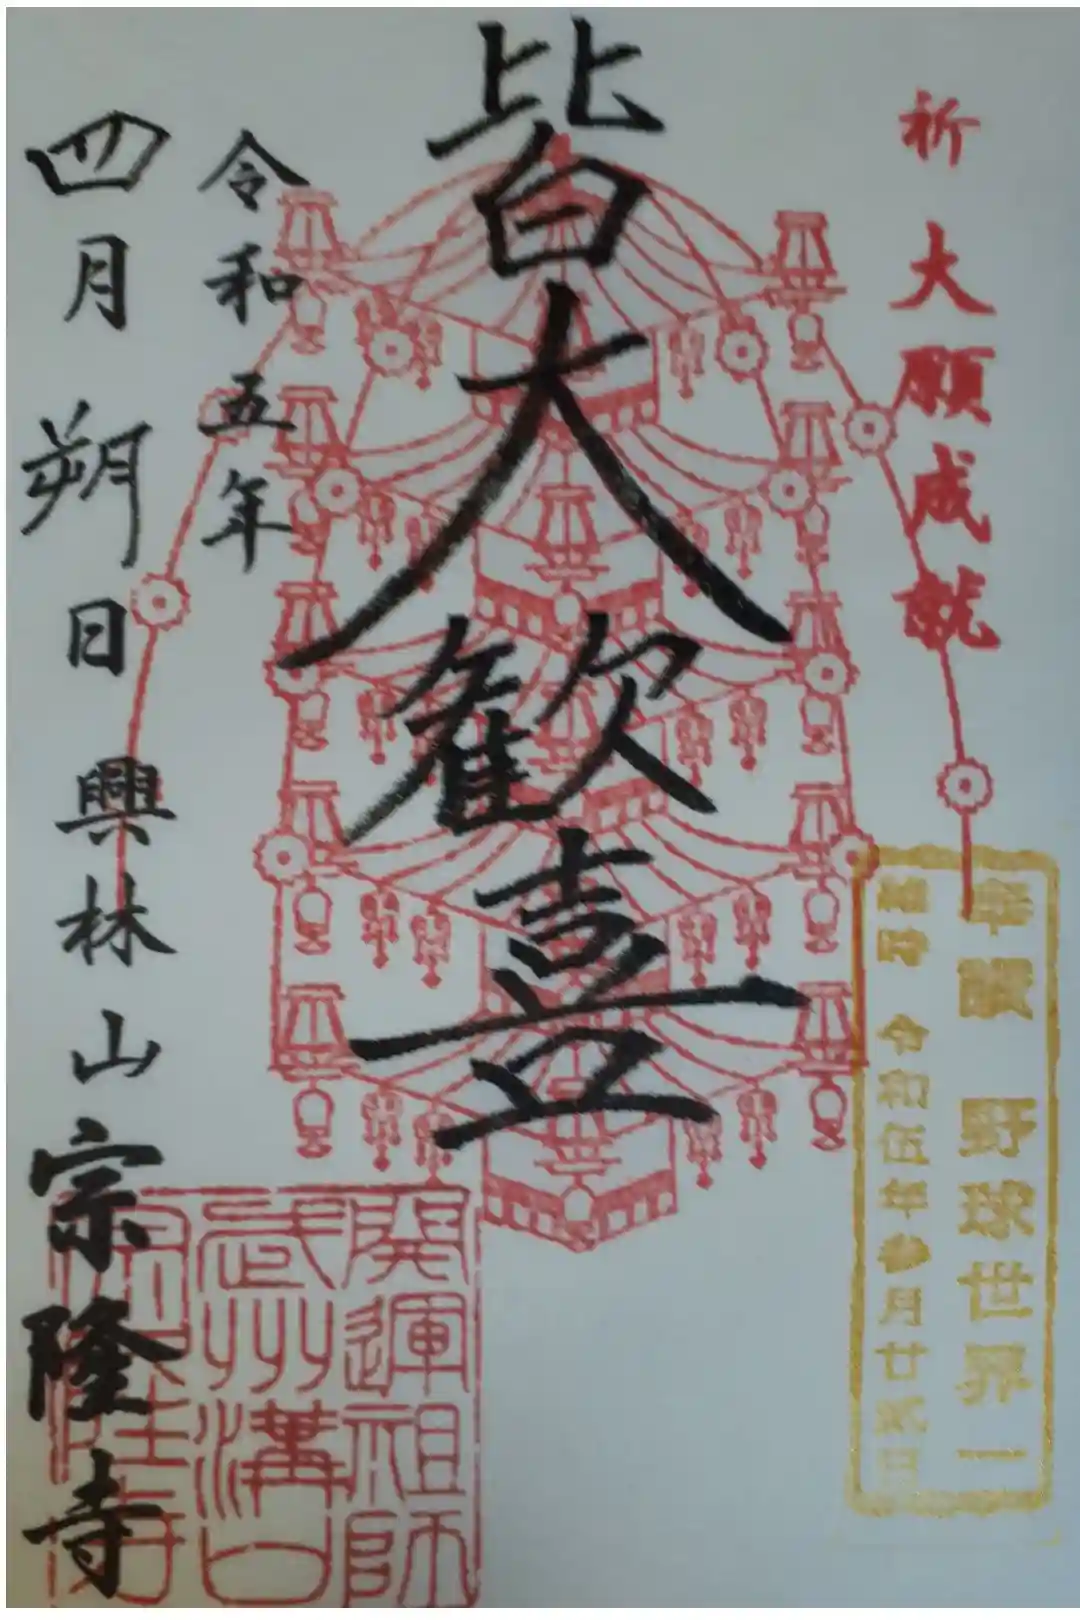 祈 大願成就
奉讃 野球世界一
維時 令和伍年参月廿弐日
皆大歓喜
令和五年
四月朔日 興林山宗隆寺
開運祖師
武州溝口
宗隆寺